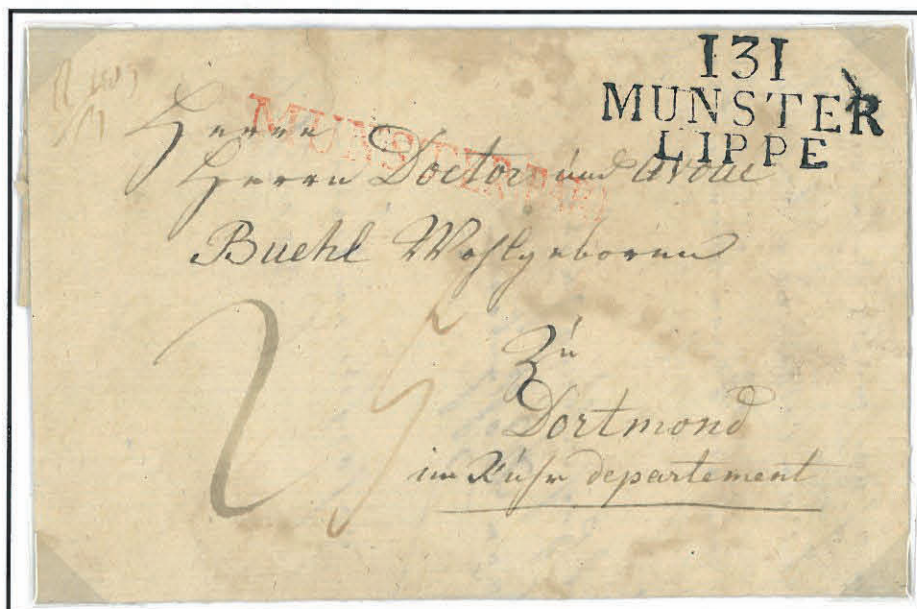 131
MUNSTER
LIPPE
MUNSTER
Herrn
Herrn Doctor und Avoué
Buehl Wohlgeboren
Zu
Dortmond
im Ruhr departement